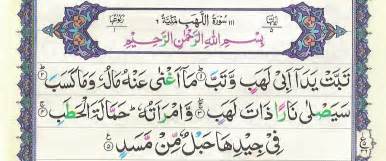 اٰیاتها ۵ ۱۱۱ سُوْرَةُ اللَّهَبِ مَكِّيَّةٌ ٦ رکوعها ۱
بِسْمِ اللّٰهِ الرَّحْمٰنِ الرَّحِيْمِ
تَبَّتْ يَدَاۤ اَبِيْ لَهَبٍ وَّتَبَّ ۱ مَاۤ اَغْنٰى عَنْهُ مَالُهٗ وَمَا كَسَبَ ۲
سَيَصْلٰى نَارًا ذَاتَ لَهَبٍ ۳ وَّامْرَاَتُهٗ حَمَّالَةَ الْحَطَبِ ۴
فِيْ جِيْدِهَا حَبْلٌ مِّنْ مَّسَدٍ ۵